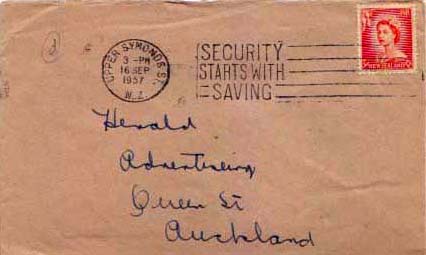 2
UPPER SYMONDS ST.
3 - PM
16 SEP
1957
N.Z.
SECURITY
STARTS WITH
SAVING
NEW ZEALAND
Herald
Advertising
Queen St
Auckland